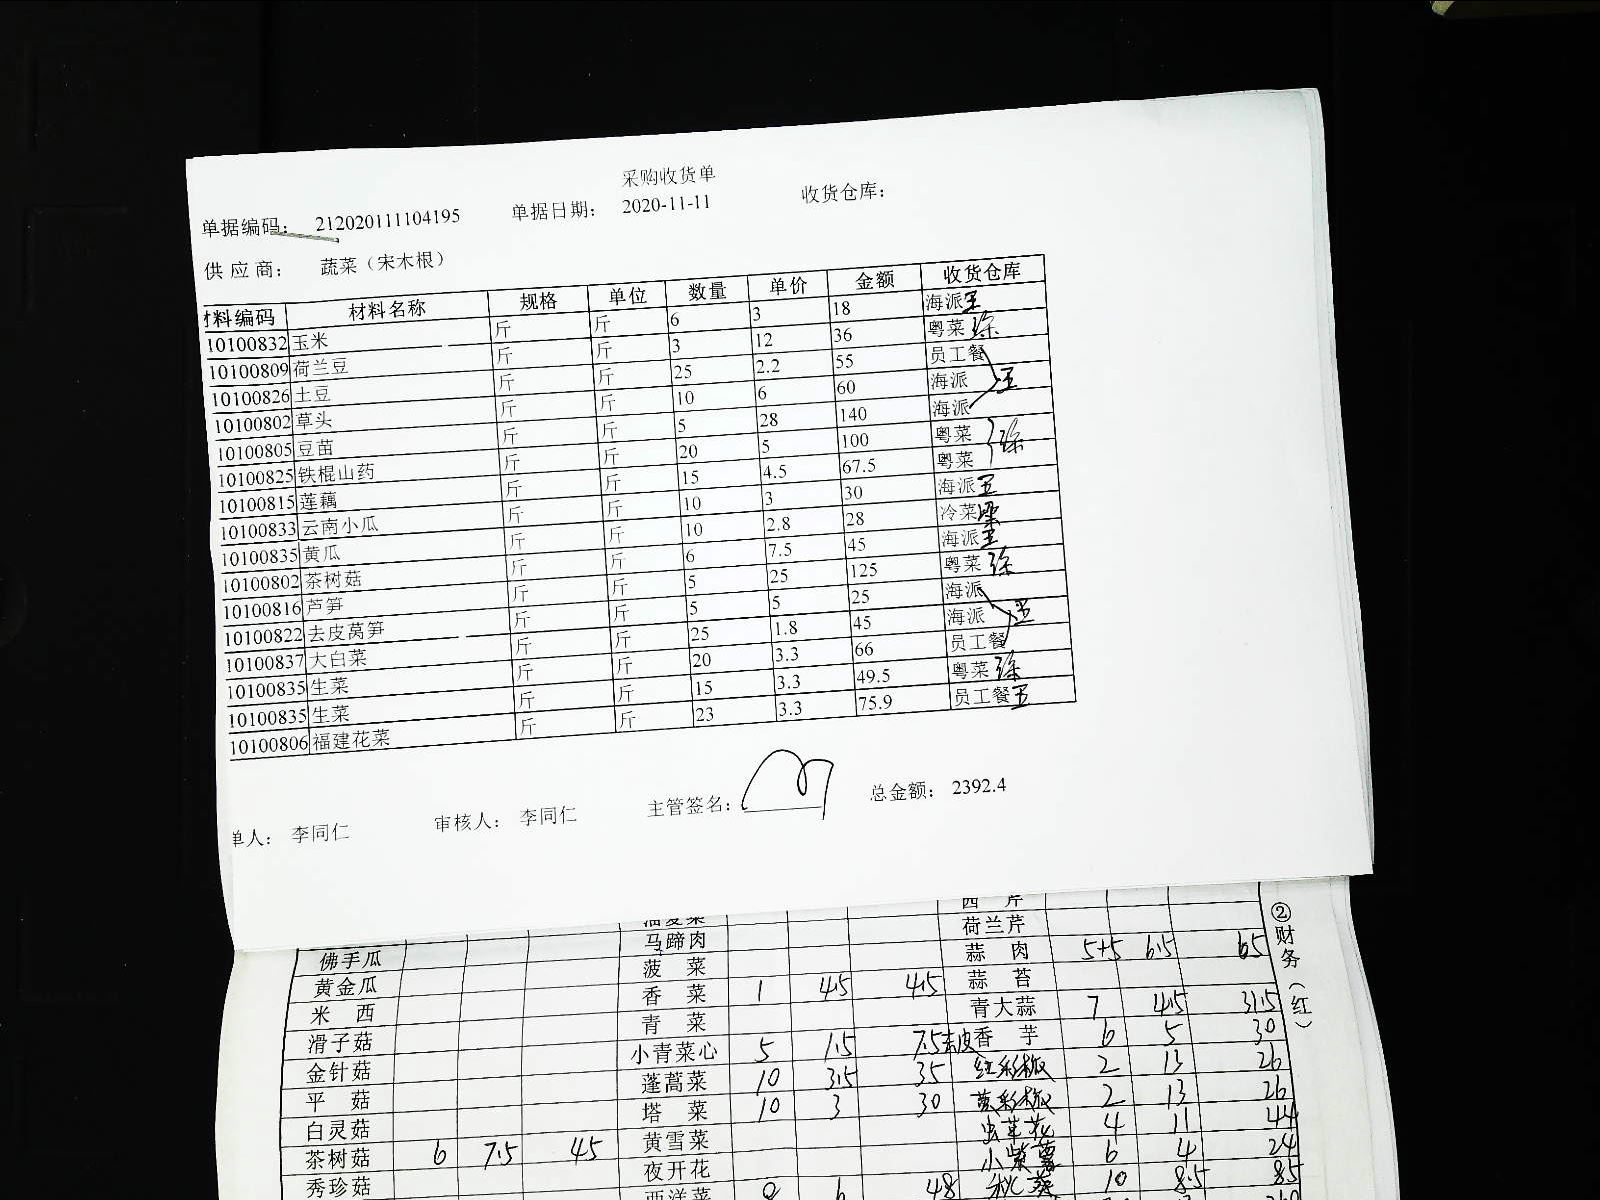 采购收货单
单据编码： 212020111104195 单据日期： 2020-11-11 收货仓库：
供应商： 蔬菜（宋木根）
材料编码 材料名称 规格 单位 数量 单价 金额 收货仓库
10100832 玉米 斤 斤 6 3 18 海派 王
10100809 荷兰豆 斤 斤 3 12 36 粤菜 徐
10100826 土豆 斤 斤 25 2.2 55 员工餐
10100802 草头 斤 斤 10 6 60 海派 王
10100805 豆苗 斤 斤 5 28 140 海派
10100825 铁棍山药 斤 斤 20 5 100 粤菜 徐
10100815 莲藕 斤 斤 15 4.5 67.5 粤菜
10100833 云南小瓜 斤 斤 10 3 30 海派 王
10100835 黄瓜 斤 斤 10 2.8 28 冷菜
10100802 茶树菇 斤 斤 6 7.5 45 海派 王
10100816 芦笋 斤 斤 5 25 125 粤菜 徐
10100822 去皮莴笋 斤 斤 5 5 25 海派
10100837 大白菜 斤 斤 25 1.8 45 海派 王
10100835 生菜 斤 斤 20 3.3 66 员工餐
10100835 生菜 斤 斤 15 3.3 49.5 粤菜 徐
10100806 福建花菜 斤 斤 23 3.3 75.9 员工餐 王
单人： 李同仁 审核人： 李同仁 主管签名： 总金额： 2392.4
西芹
油麦菜 荷兰芹
佛手瓜 马蹄肉 蒜肉 5+5 6.5 65
黄金瓜 菠菜 蒜苔
米西 香菜 1 4.5 4.5 青大蒜 7 4.5 31.5
滑子菇 青菜 去皮香芋 6 5 30
金针菇 小青菜心 5 1.5 7.5 红彩椒 2 13 26
平菇 蓬蒿菜 10 3.5 35 黄彩椒 2 13 26
白灵菇 塔菜 10 3 30 虫草花 4 11 44
茶树菇 6 7.5 45 黄雪菜 小紫薯 6 4 24
秀珍菇 夜开花 秋葵 10 8.5 85
西洋菜 8 6 48
②财务（红）